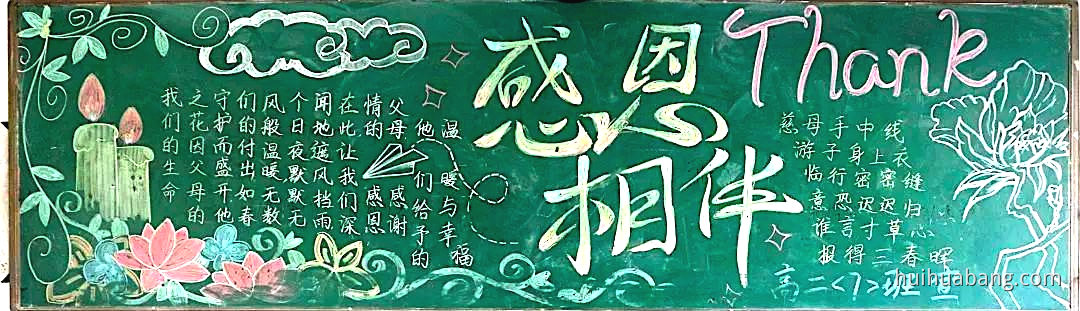 感恩
相伴
Thank
我们的生命
之花因父母的
守护而盛开他
们的付出如春
风般温暖无数
个日夜默默无
闻地遮风挡雨
在此让我们深
情的感恩
父母感谢
他们给予的
温暖与幸福
慈母手中线
游子身上衣
临行密密缝
意恐迟迟归
谁言寸草心
报得三春晖
高二<7>班宣
huihuabang.com